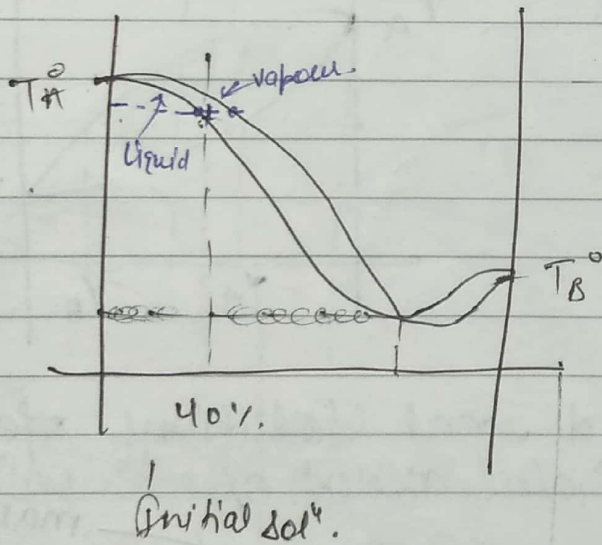 T°A
vapour.
Liquid
T°B
40%.
Initial solⁿ.